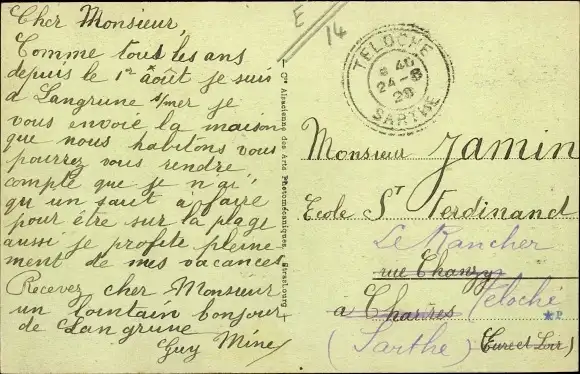 Cher Monsieur,
Comme tous les ans
depuis le 1er août je suis
a Langrune s/mer je
vous envoie la maison
que nous habitons vous
pourrez vous rendre
compte que je n'ai
qu'un saut à faire
pour être sur la plage
aussi je profite pleine-
ment de mes vacances
Recevez cher Monsieur
un lointain bonjour
de Langrune
Guy
E
14
Cie Alsacienne des Arts Photomécaniques, Strasbourg
TELOCHÉ
8 40
24-8
29
SARTHE
Monsieur Jamin
Ecole St Ferdinand
Le Rancher
rue Chanzy
a Chartres Teloché
(Sarthe) (Eure et Loir)